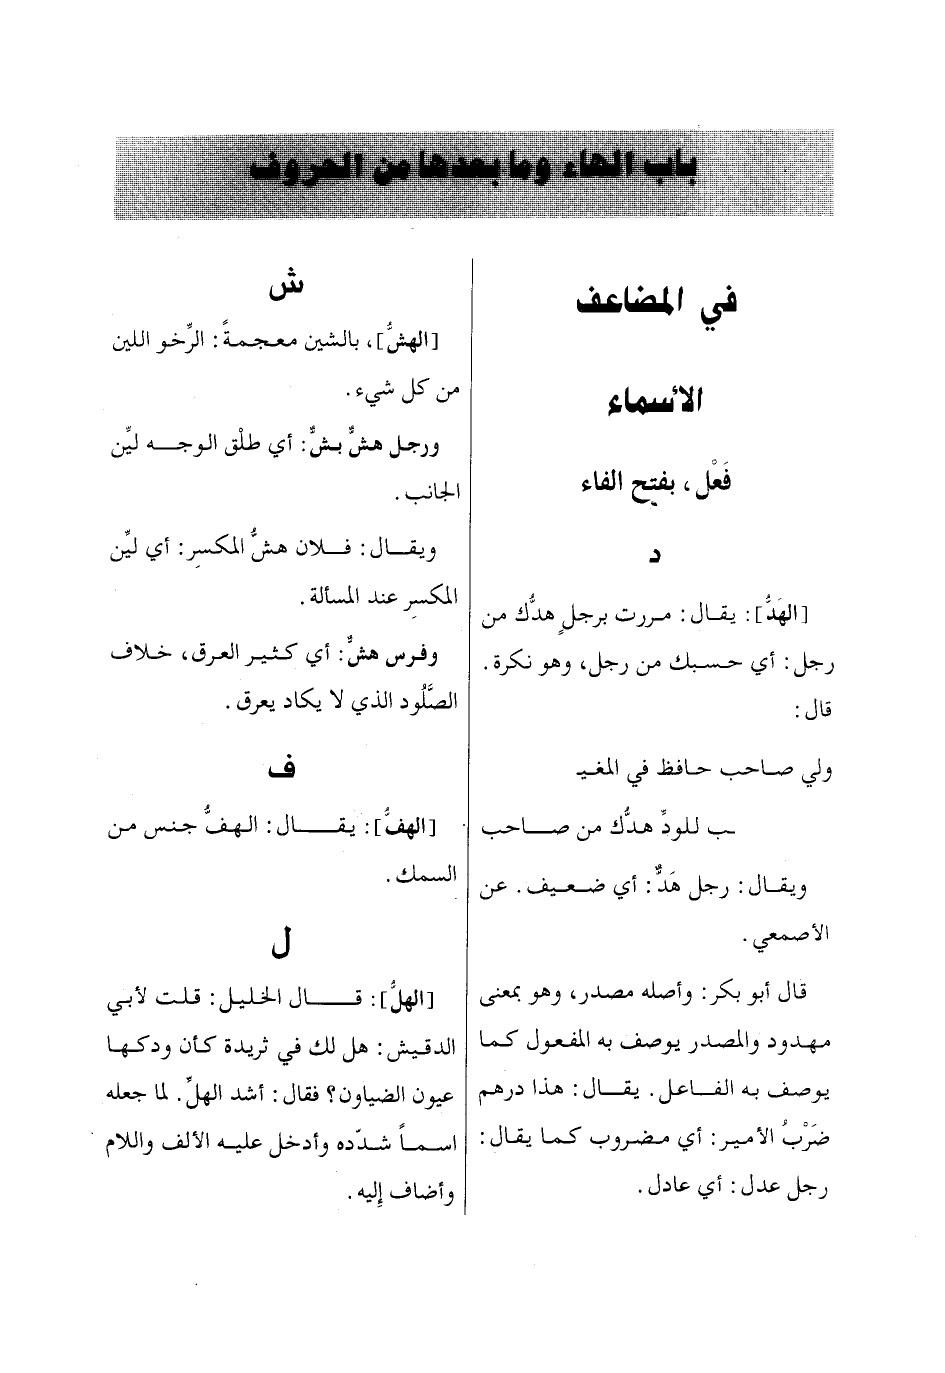 باب الهاء وما بعدها من الحروف
في المضاعف
الأسماء
فَعْل، بفتح الفاء
د
[الهَدُّ]: يقال: مررت برجلٍ هدُّك من
رجل: أي حسبك من رجل، وهو نكرة.
قال:
ولي صاحب حافظ في المغيـ
ـب للودِّ هدُّك من صاحب
ويقال: رجل هَدٌّ: أي ضعيف. عن
الأصمعي.
قال أبو بكر: وأصله مصدر، وهو بمعنى
مهدود والمصدر يوصف به المفعول كما
يوصف به الفاعل. يقال: هذا درهم
ضَرْبُ الأمير: أي مضروب كما يقال:
رجل عدل: أي عادل.
ش
[الهشُّ]، بالشين معجمةً: الرِّخو اللين
من كل شيء.
ورجل هشٌّ بشٌّ: أي طلْق الوجه ليِّن
الجانب.
ويقال: فلان هشُّ المكسِر: أي ليِّن
المكسِر عند المسألة.
وفرس هشٌّ: أي كثير العرق، خلاف
الصَّلُود الذي لا يكاد يعرق.
ف
[الهفُّ]: يقال: الهفُّ جنس من
السمك.
ل
[الهلُّ]: قال الخليل: قلت لأبي
الدقيش: هل لك في ثريدة كأن ودكها
عيون الضياون؟ فقال: أشد الهلِّ. لما جعله
اسماً شدّده وأدخل عليه الألف واللام
وأضاف إليه.